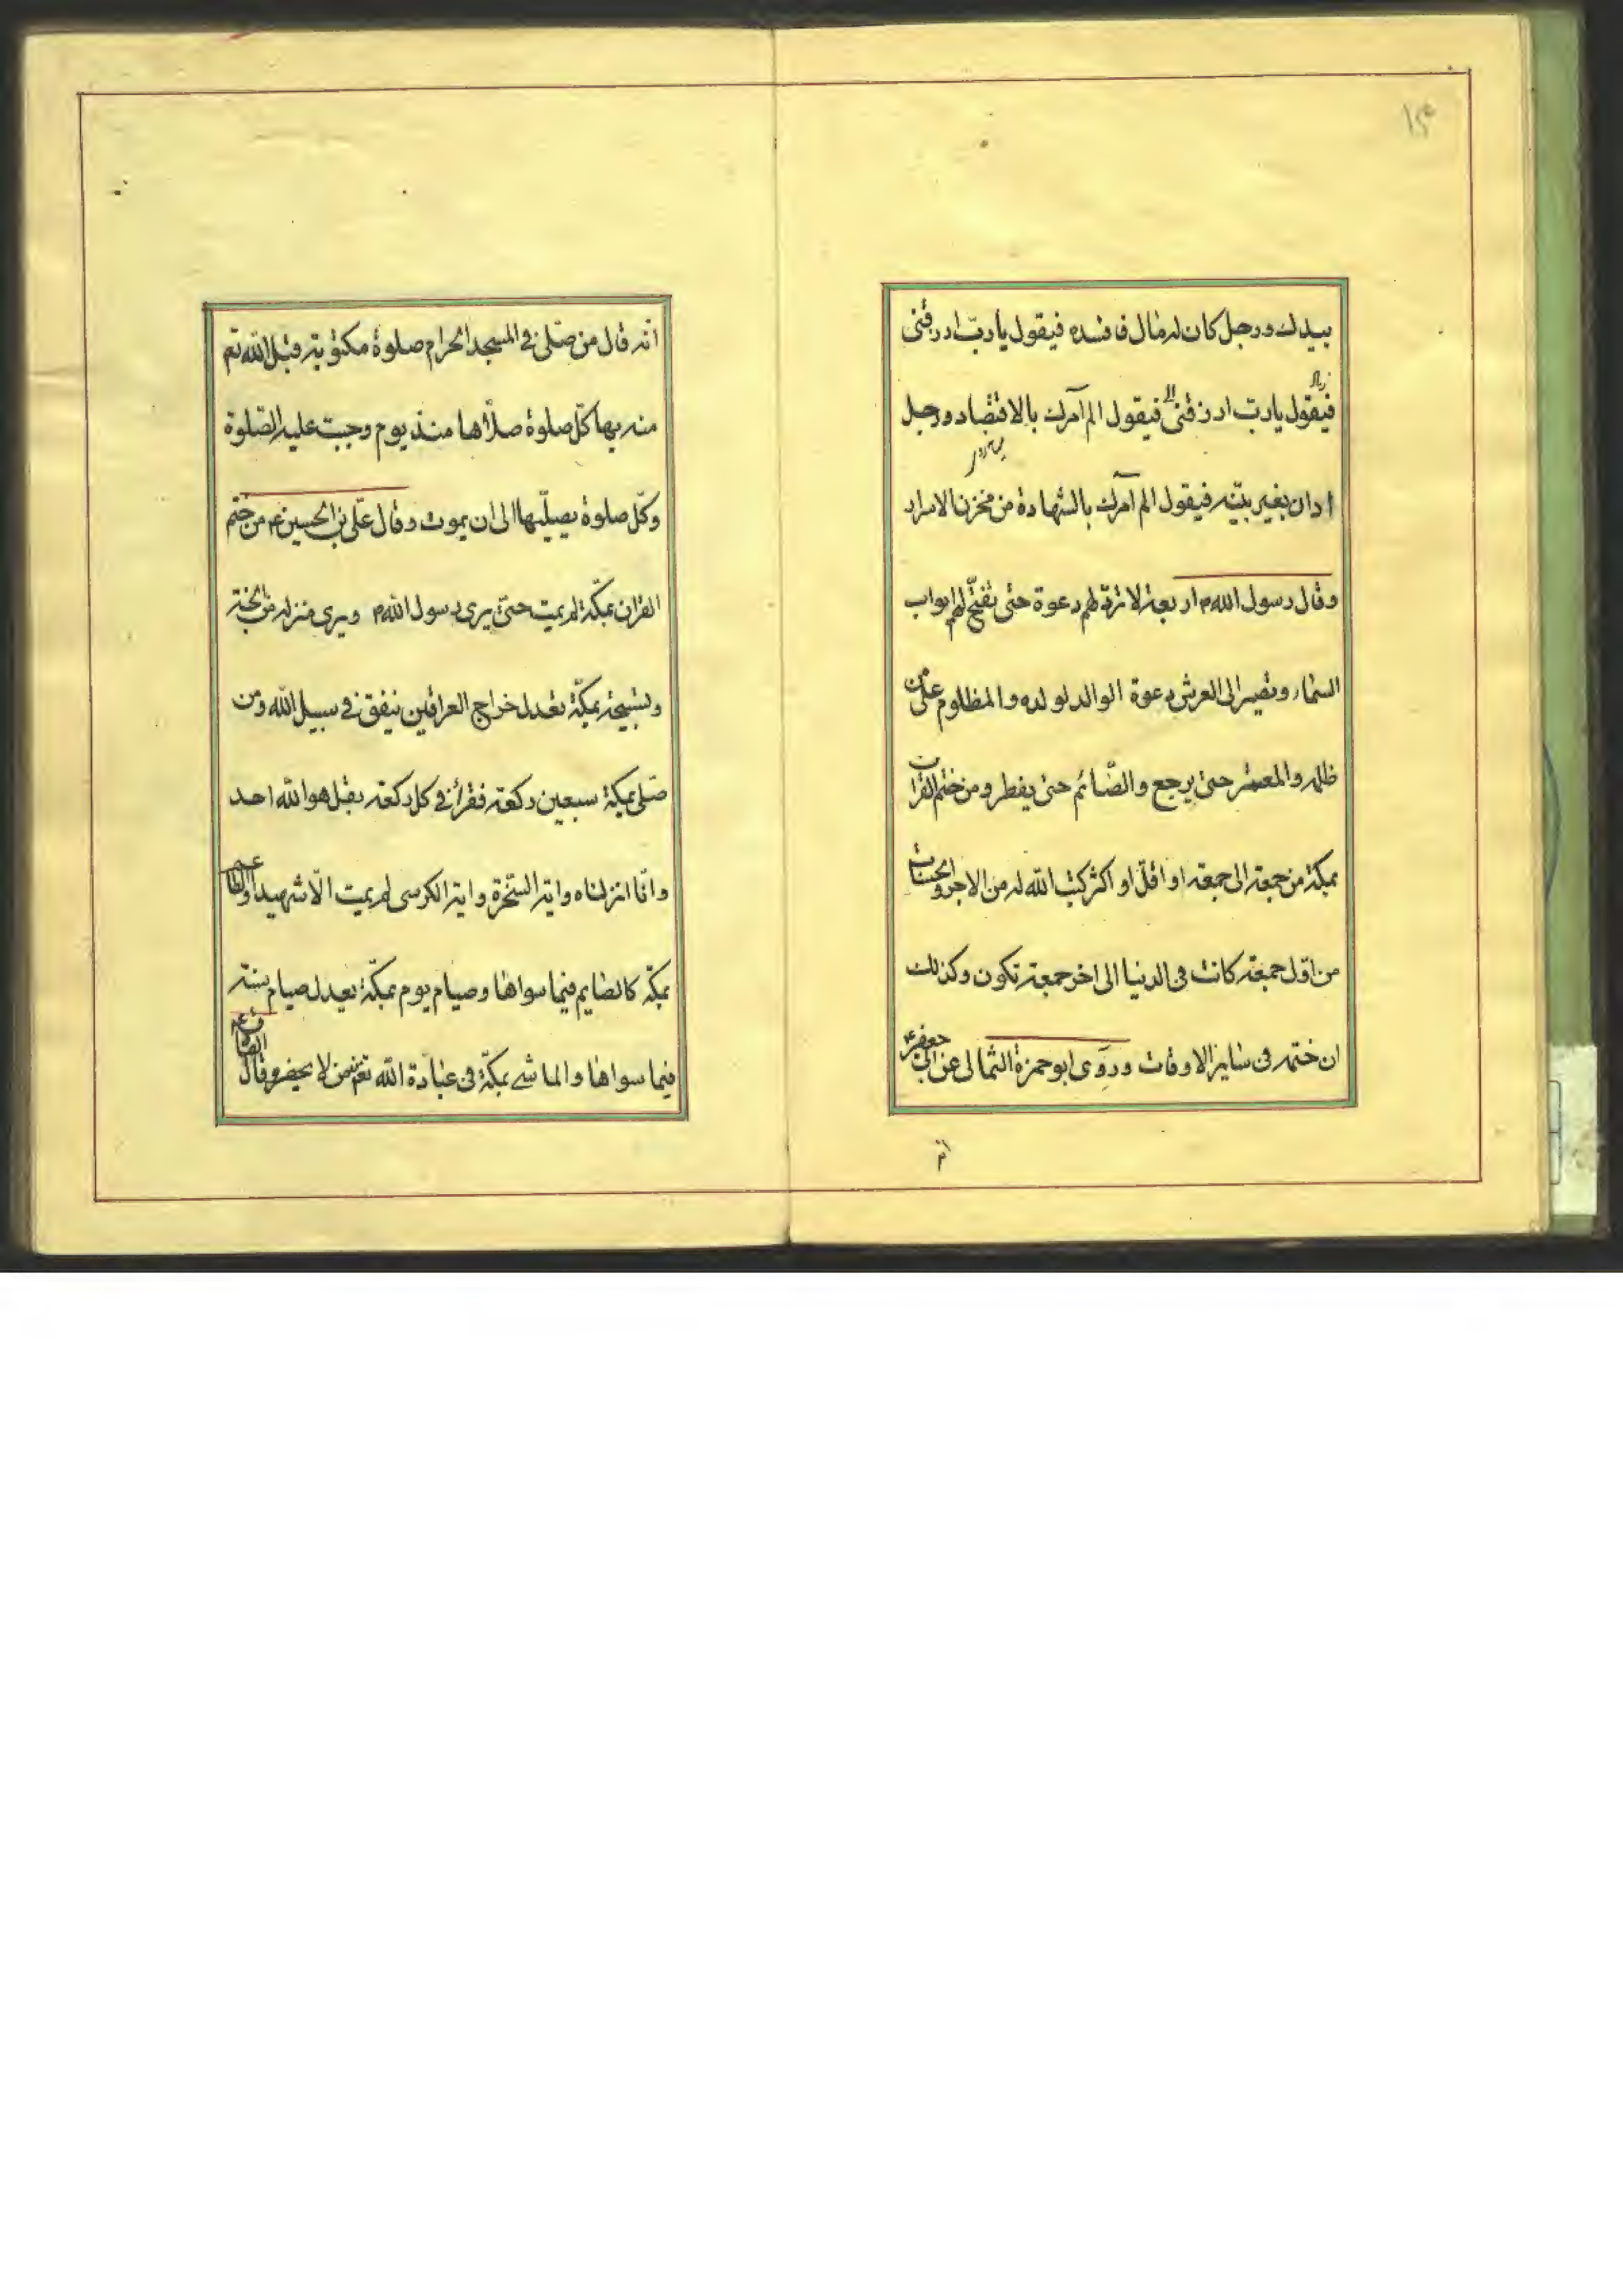 بيدك ورجل كان له مال فافسده فيقول يا ربّ ارزقنى
فيقول يا ربّ ارزقنى فيقول الم آمرك بالاقتصاد ورجل
ادان بغير بيّنه فيقول الم آمرك بالشهادة من مخزن الاسرار
وقال رسول الله ص اربعة لا تردّ لهم دعوة حتى تفتّح لهم ابواب
السّماء وتصير الى العرش دعوة الوالد لولده والمظلوم على من
ظلمه والمعتمر حتى يرجع والصّائم حتى يفطر ومن ختم القران
بمكة من جمعة الى جمعة او اقلّ او اكثر كتب الله له من الاجر والحسنات
من اوّل جمعة كانت فى الدنيا الى اخر جمعة تكون وكذلك
ان ختمه فى ساير الاوقات وروى ابو حمزة الثمالى عن ابى جعفر ع
انّه
انّه قال من صلّى فى المسجد الحرام صلوة مكتوبة قبل الله تع
منه بها كلّ صلوة صلّاها منذ يوم وجبت عليه الصّلوة
وكلّ صلوة يصلّيها الى ان يموت وقال علىّ بن الحسين ع من ختم
القران بمكّة لم يمت حتى يرى رسول الله ص ويرى منزله من الجنّة
وتسبيحة بمكّة تعدل خراج العراقين ينفق فى سبيل الله ومن
صلّى بمكة سبعين ركعة فقرأ فى كل ركعة بقل هو الله احد
وانّا انزلناه واية السّخرة واية الكرسى لم يمت الّا شهيدا والطاعم
بمكّة كالصايم فيما سواها وصيام يوم بمكّة يعدل صيام سنة
فيما سواها والماشى بمكّة فى عبادة الله تع وقال الصادق ع